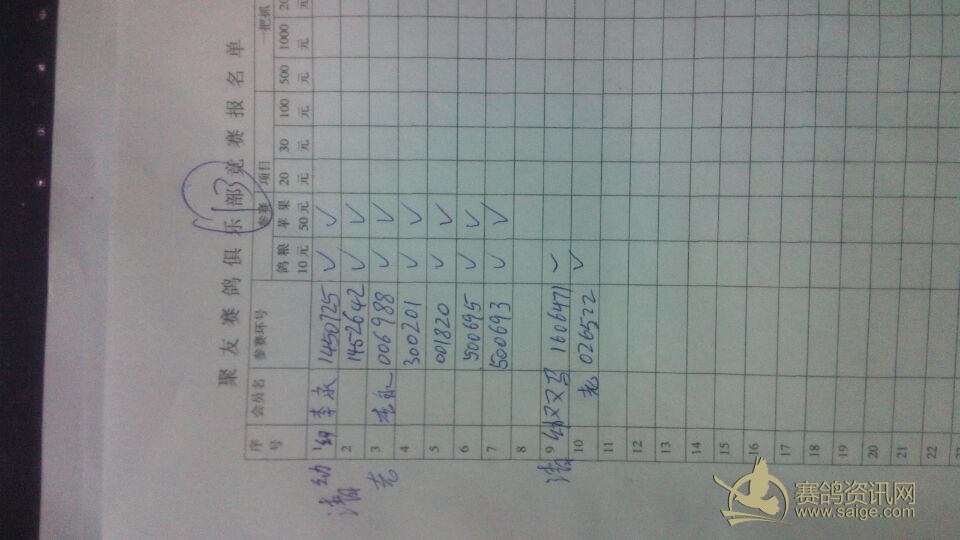 聚友赛鸽俱乐部竞赛报名单
13
序号 会员名 参赛环号 参赛项目 一把抓
鸽粮10元 苹果50元 20元 30元 100元 500元 1000元 20
1 幼 李永 1450725 ✓ ✓
2 1452642 ✓ ✓
3 006988 ✓ ✓
4 300201 ✓ ✓
5 001820 ✓ ✓
6 500695 ✓ ✓
7 500693 ✓ ✓
8
9 1606471 ✓
10 老 026522 ✓
11
12
13
14
15
16
17
18
19
20
21
22
幼
老
赛鸽资讯网
www.saige.com